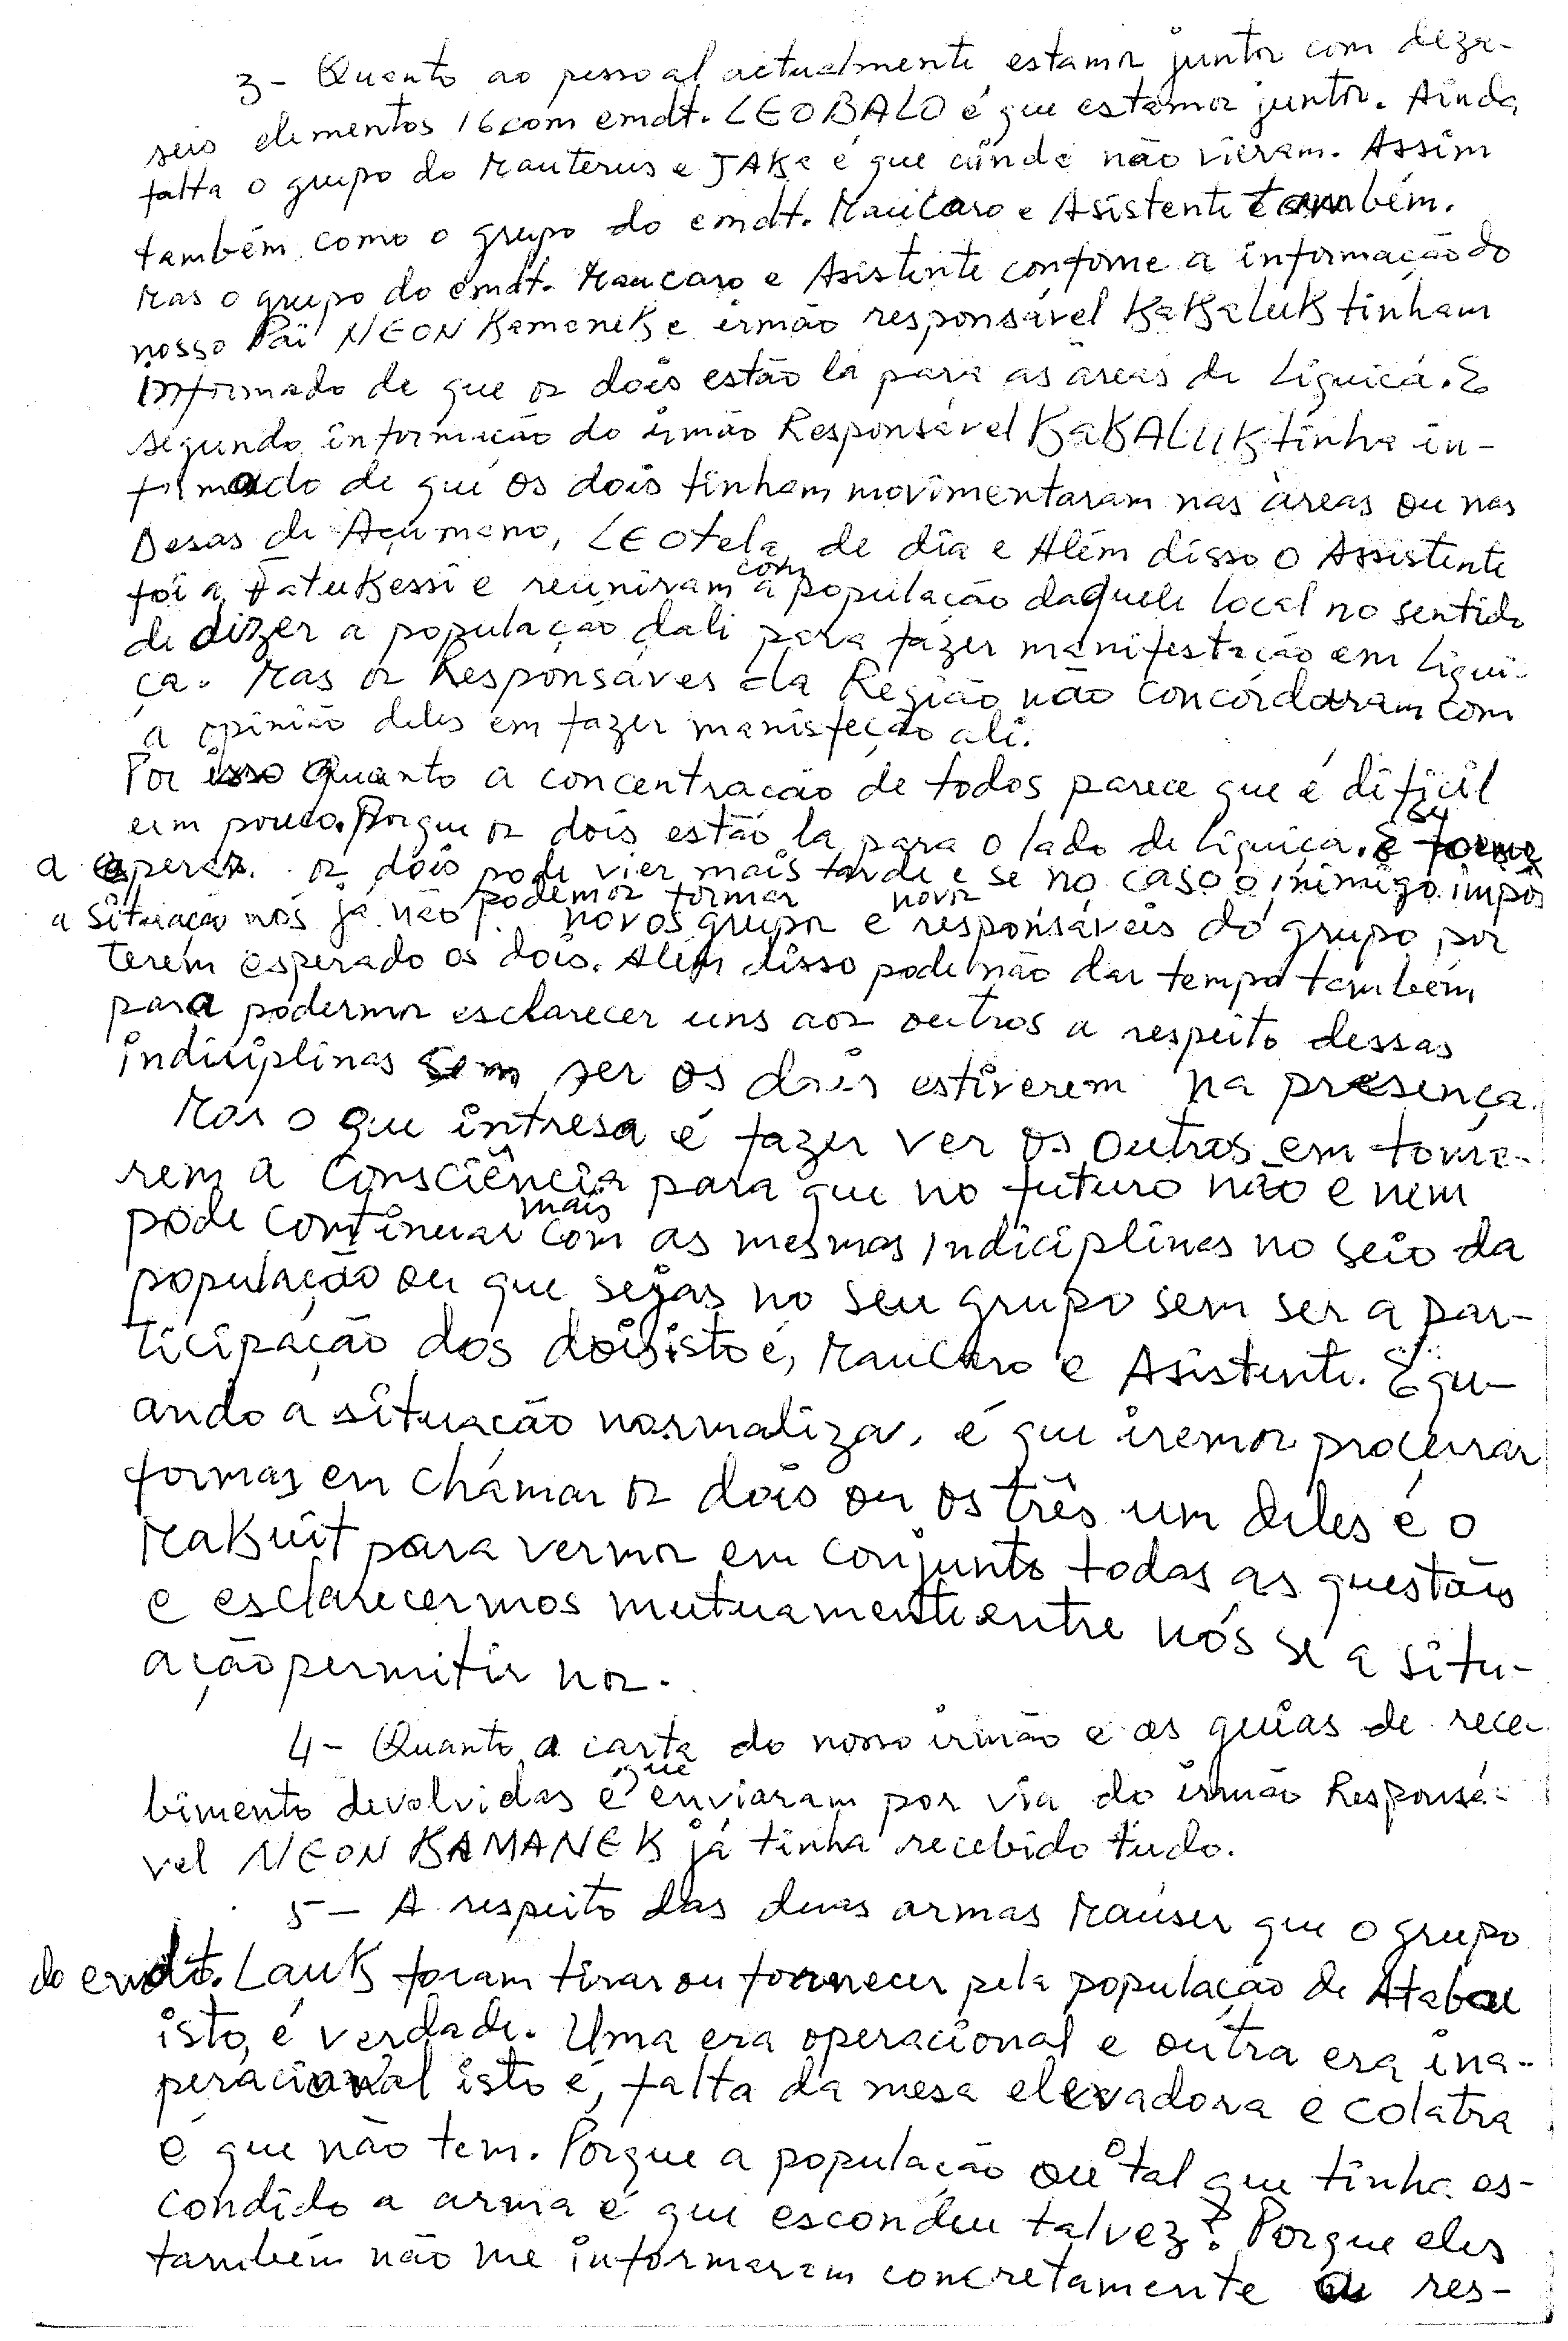 3- Quanto ao pessoal actualmente estamos juntos com deza-
seis elementos 16 com cmdt. LEOBALO é que estamos juntos. Ainda
falta o grupo do Mauterus e JAKa é que ainda não vieram. Assim
também como o grupo do cmdt. MauCaso e Asistente também.
Mas o grupo do cmdt. Maucaro e Asistente conforme a informação do
nosso Pai NEON KamaneK e irmão responsável KaKaluK tinham
informado de que os dois estão lá para as áreas de Liquiçá. E
segundo informação do irmão Responsável KaKALUK tinha in-
formado de que os dois tinham movimentaram nas áreas ou nas
Desas de Açumano, LEOtela de dia e Além disso o Assistente
foi a FatuKessi e reuniram com a população daquele local no sentido
de dizer a população dali para fazer manifestação em Liqui-
ça. Mas os Responsáves da Região não concordaram com
a opinião deles em fazer manisfeção ali.
Por isso Quanto a concentração de todos parece que é dificil
um pouco. Porque os dois estão lá para o lado de Liquiça. E se
a esperar. os dois pode vier mais tarde e se no caso o inimigo impôs
a situação nós já não podemos formar novos grupos e novos responsáveis do grupo por
terem esperado os dois. Além disso pode não dar tempo também
para podermos esclarecer uns aos outros a respeito dessas
indiciplinas sem ser os dois estiverem na presença.
Mas o que intresa é fazer ver os outros em toma-
rem a Consciência para que no futuro não e nem
pode continuar mais com as mesmas indiciplinas no seio da
população ou que sejas no seu grupo sem ser a par-
ticipação dos dois isto é, MauCaro e Asistente. E qu-
ando a situação normaliza, é que iremos procurar
formas em chamar os dois ou os três um deles é o
MaKuit para vermos em conjunto todas as questão
e esclarecermos mutuamente entre nós se a situ-
ação permitir nos.
4- Quanto a carta do nosso irmão e as guias de rece-
bimento devolvidas é que enviaram por via do irmão Responsá-
vel NEON KAMANEK já tinha recebido tudo.
5- A respeito das duas armas Mauser que o grupo
do cmdt. LauK foram tirar ou fornecer pela população de Atabou
isto, é verdade. Uma era operacional e outra era ina-
peracional isto é, falta da mesa elevadora e colatra
é que não tem. Porque a população ou o tal que tinha es-
condido a arma é que escondeu talvez? Porque eles
também não me informaram concretamente a res-